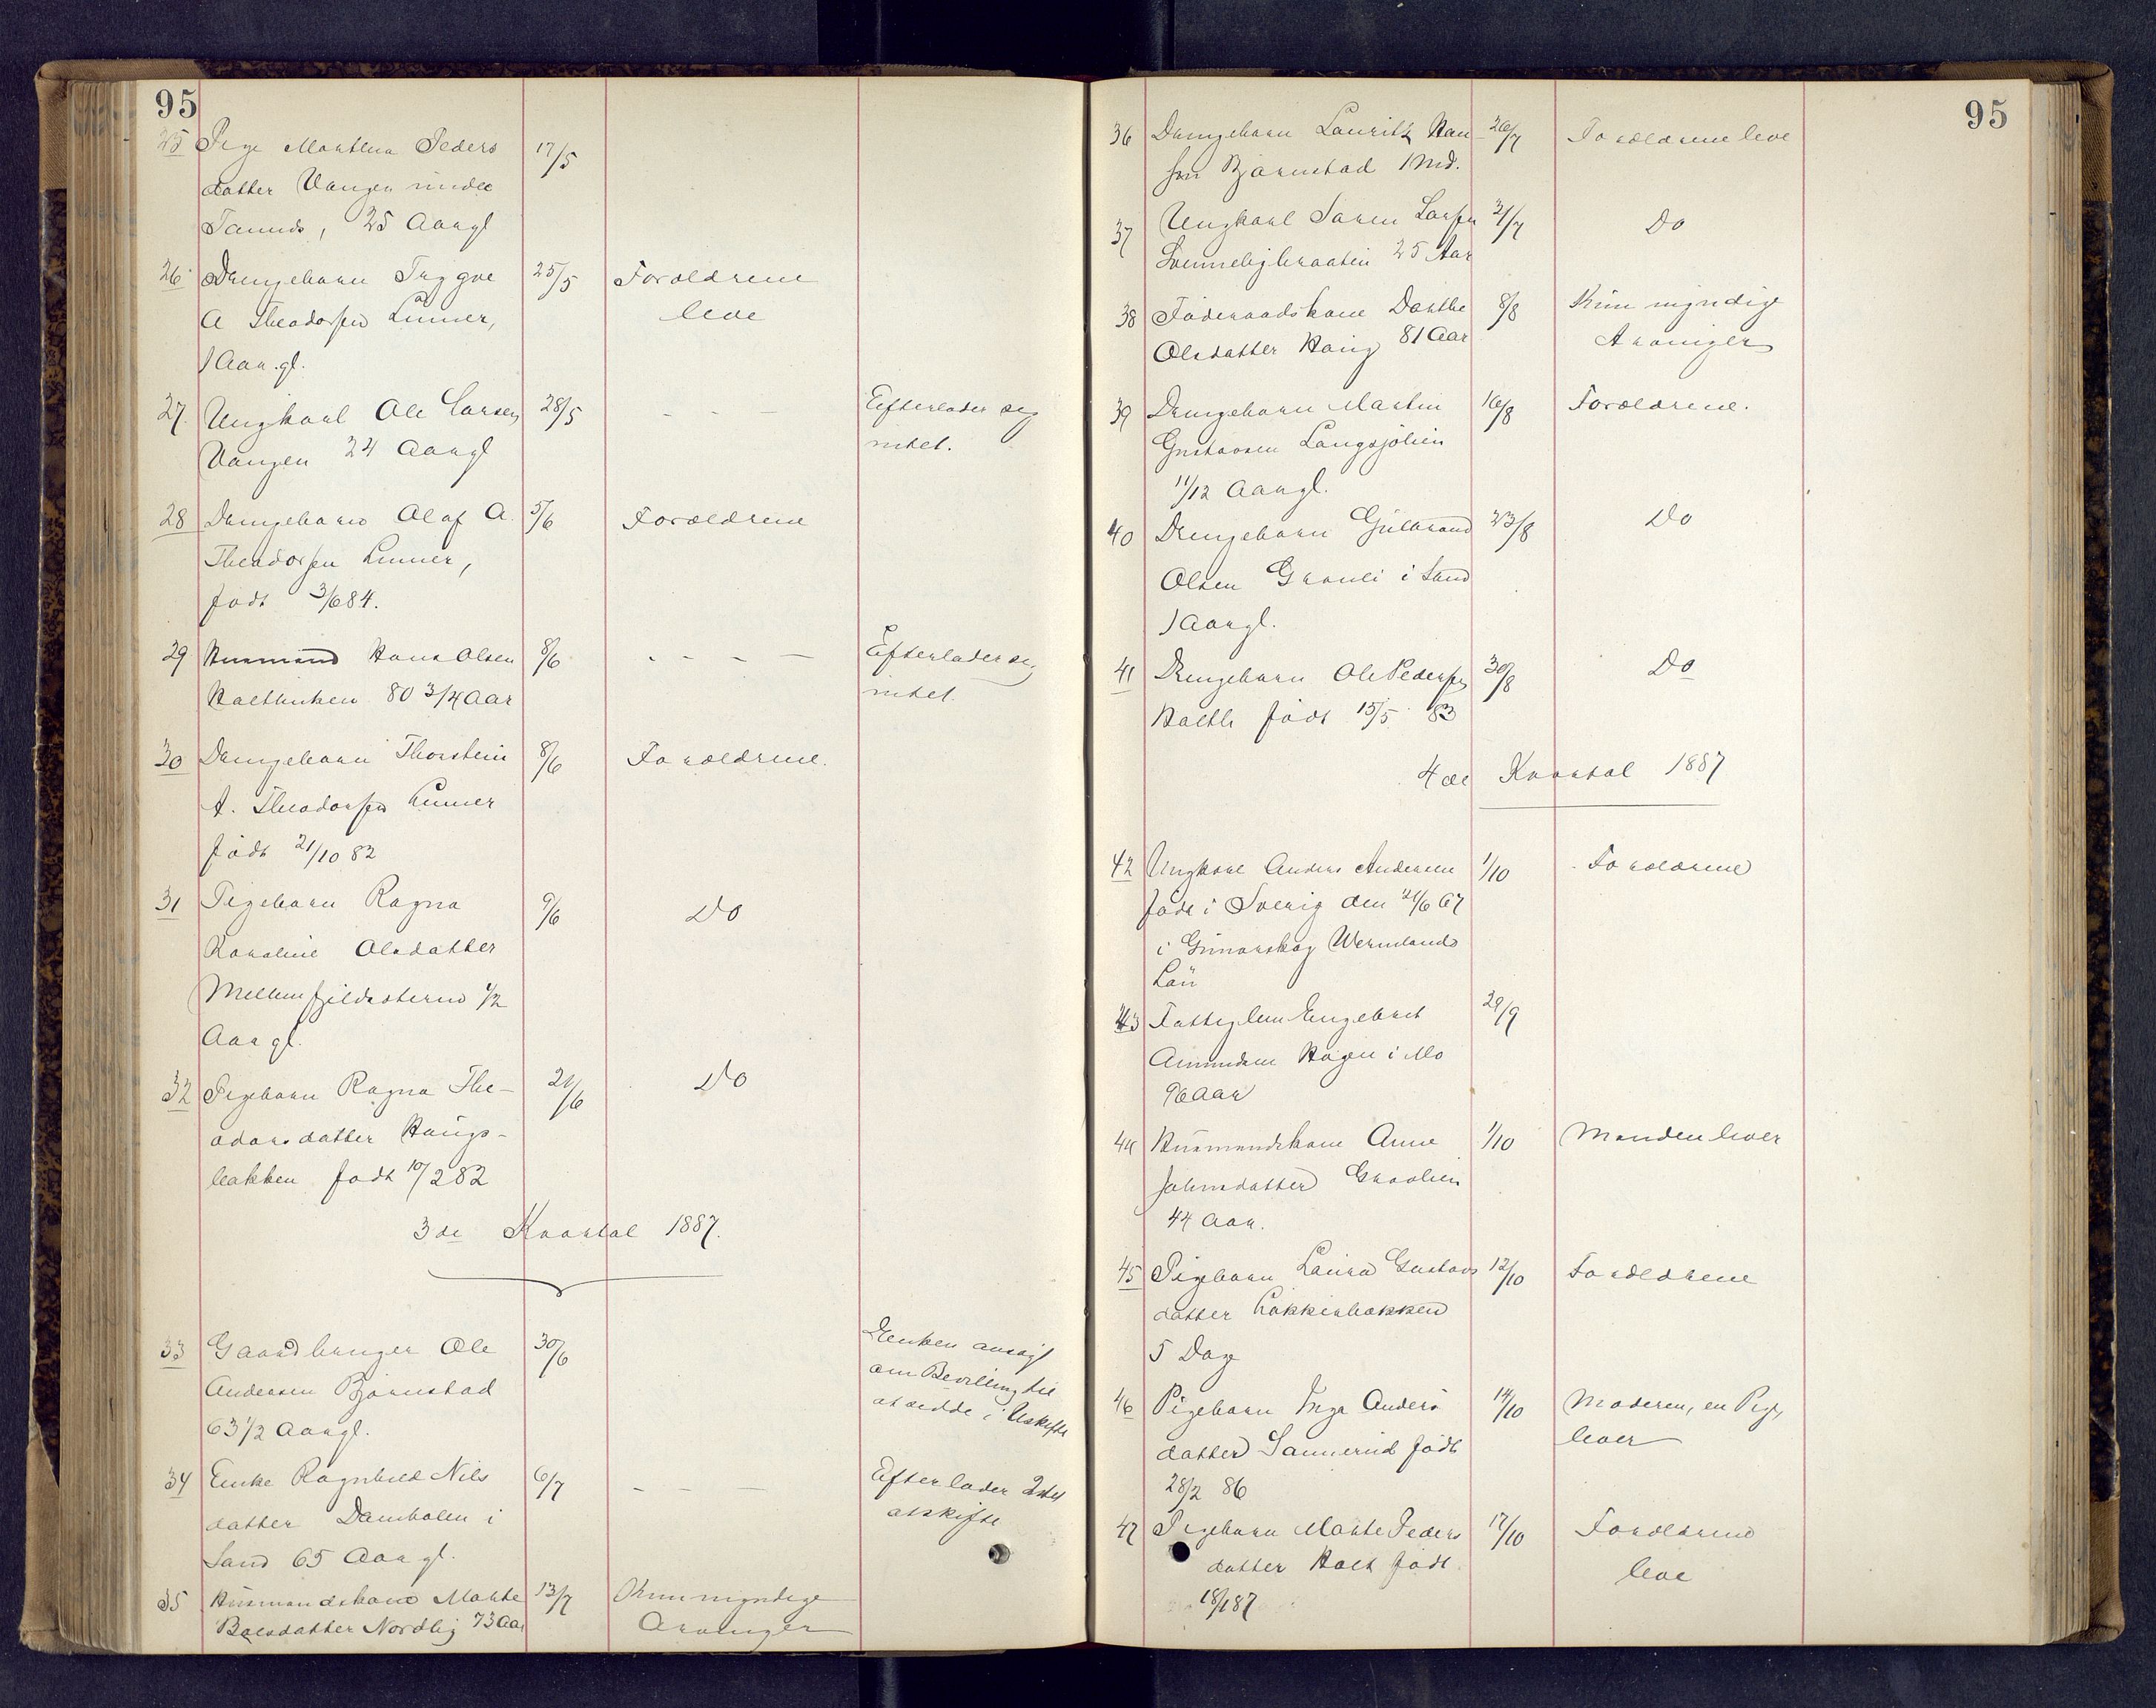 95
25 Pige Marthea Peders 17/5
datter Vangen under
25 Aargl
26 Drengebarn Trygve 25/5 Forældrene
A Theodorsen Lunner, leve
1 Aar.gl.
27 Ungkarl Ole Larsen 28/5 - - - Efterlader sig
Vangen 24 Aargl intet.
28 Drengebarn Olaf A. 5/6 Forældrene
Theodorsen Lunner,
født 3/6 84.
29 Husmand Hans Olsen 8/6 - - - - Efterlader sig
80 3/4 Aar intet.
30 Drengebarn Thorstein 8/6 Forældrene.
A. Theodorsen Lunner
født 21/10 82
31 Pigebarn Ragna 9/6 Do
Karoline Olsdatter
1/2
Aar gl.
32 Pigebarn Ragna The- 21/6 Do
odorsdatter Haugs-
bakken født 10/2 82
3de Kvartal 1887.
33 Gaardbruger Ole 30/6 Enken ansøgt
Andersen Bjørnstad om Bevilling til
63 1/2 Aargl. at sidde i Uskifte
34 Enke Ragnhild Nils 6/7 - - - Efterlader Intet
datter Damholen i at skifte
Sand 65 Aar gl.
35 Husmandskone Marthe 13/7 Kun myndige
Boesdatter Nordby 73 Aar Arvinger
95
36 Drengebarn Lauritz Han 26/7 Forældrene leve
sen Bjørnstad 1 Md.
37 Ungkarl Søren Larsen 31/7 Do
Svennebybraaten 25 Aar
38 Føderaadskone Dorthe 8/8 Kun myndige
Olsdatter Haug 81 Aar Arvinger
39 Drengebarn Martin 16/8 Forældrene.
Gustavsen Langsjølien
11/12 Aargl.
40 Drengebarn Gulbrand 23/8 Do
Olsen Granli i Sand
1 Aargl.
41 Drengebarn Ole Pedersen 30/8 Do
Holth født 15/5 83
4de Kvartal 1887
42 Ungkarl Anders Andersen 1/10 Forældrene
født i Sverig den 21/6 67
i Gunarskog Wermlands
Län
43 Fattiglem Engebret 29/9
Amundsen Hagen i Mo
76 Aar
44 Husmandskone Anne 1/10 Manden lever
Johnsdatter Graalien
44 Aar.
45 Pigebarn Laura Gustavs 12/10 Forældrene
datter Løkkerbakken
5 Dage
46 Pigebarn Inga Anders 14/10 Moderen, en Pige,
datter Sannerud født lever
28/2 86
47 Pigebarn Marte Peders 17/10 Forældrene
datter Holt født leve
18/1 87